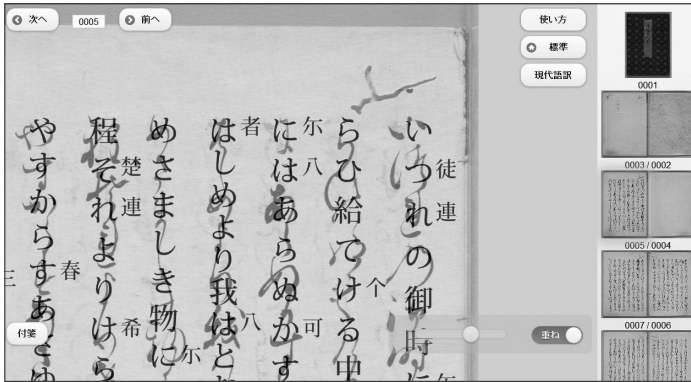 次へ
0005
前へ
使い方
標準
現代語訳
徒連
いつれの御時に
个
らひ給てける中
尓八 可
にはあらぬかす
者 八
はしめより我はと
尓
めさましき物に
楚連 希
程それよりけら
春
やすからすあさゆ
三
付箋
重ね
0001
0003 / 0002
0005 / 0004
0007 / 0006